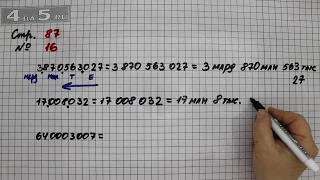 4 АБ 5.NET
Стр. 87
№ 16
3870563027 = 3 870 563 027 = 3 млрд 870 млн 563 тыс
27
млрд млн т Е
17008032 = 17 008 032 = 17 млн 8 тыс.
640003007 =